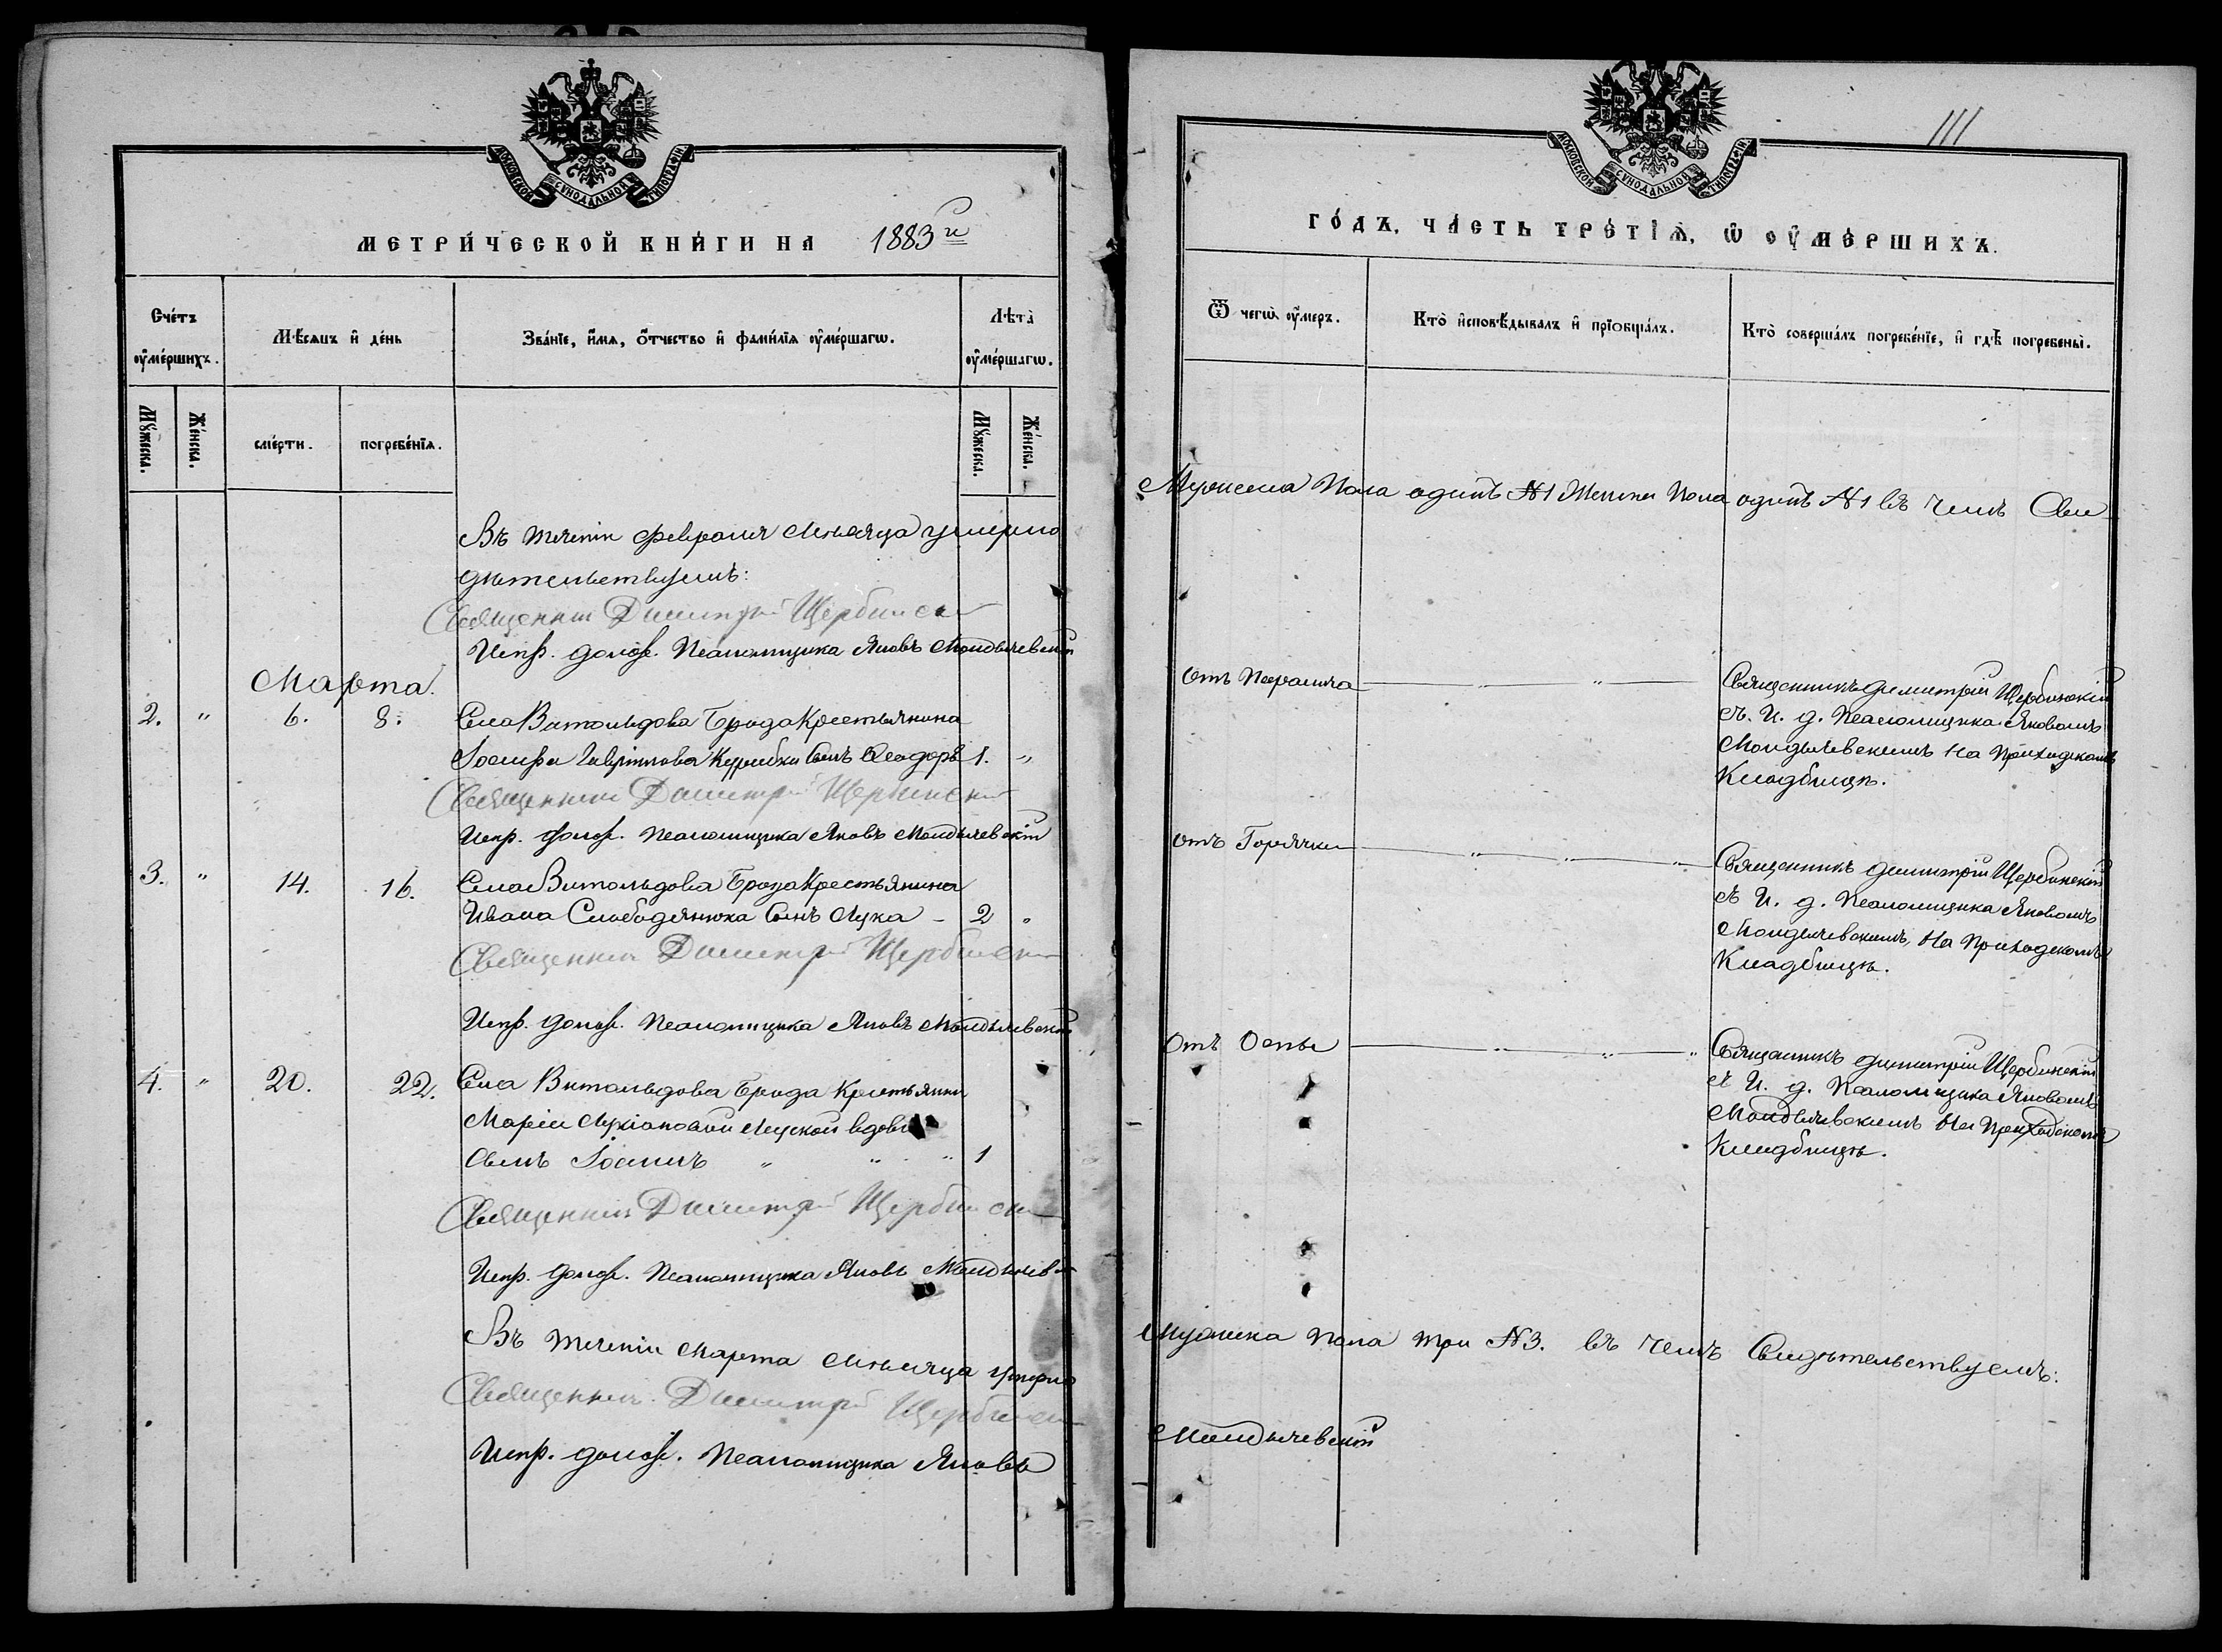 МОСКОВСКОЙ СѴНОДАЛЬНОЙ ТИПОГРАФІИ
МЕТРИ́ЧЕСКОЙ КНИ́ГИ НА 1883й
Сче́тъ ᲂу҆ме́ршихъ.
Мѣ́сяцъ и҆ де́нь
Зва́нїе, и҆́мѧ, ѻ҆́тчество и҆ фами́лїѧ ᲂу҆ме́ршагѡ.
Лѣ́та ᲂу҆ме́ршагѡ.
Мꙋ́жеска.
Же́нска.
сме́рти.
погребе́нїѧ.
Мꙋ́жеска.
Же́нска.
Въ теченіи февраля Мѣсяца умерло
дѣтельствуемъ:
Священник Димитрій Щербинскій
Испр. долж. Псаломщика Яковъ
Марта.
2. " 6. 8. Села Витольдова Брода Крестьянина
Іосифа Сынъ Ѳеодоръ 1. "
Священник Димитрій Щербинскій
Испр. долж. Псаломщика Яковъ
3. " 14. 16. Села Витольдова Брода Крестьянина
Ивана Слободянюка Сынъ Лука - 2 "
Священник Димитрій Щербинскій
Испр. долж. Псаломщика Яковъ
4. " 20. 22. Села Витольдова Брода Крестьянки
Маріи вдовы
Сынъ Іоаннъ " " " 1
Священник Димитрій Щербинскій
Испр. долж. Псаломщика Яковъ
Въ теченіи Марта Мѣсяца умерло
Священник Димитрій Щербинскій
Испр. долж. Псаломщика Яковъ
111
МОСКОВСКОЙ СѴНОДАЛЬНОЙ ТИПОГРАФІИ
ГО́ДЪ, ЧА́СТЬ ТРЕ́ТІѦ, Ѡ҆ ОУ҆МЕ́РШИХЪ.
Ѿ чегѡ̀ ᲂу҆́меръ.
Кто̀ и҆сповѣ́дывалъ и҆ прїобща́лъ.
Кто̀ соверша́лъ погребе́нїе, и҆ гдѣ̀ погребены̀.
Мужеска Пола одинъ №1 Женска Пола одинъ №1 въ чемъ Сви
Отъ
Священникъ Димитрій Щербинскій
съ И. д. Псаломщика Яковомъ
на Приходскомъ
Кладбищѣ.
Отъ Горячки
Священникъ Димитрій Щербинскій
съ И. д. Псаломщика Яковомъ
На Приходскомъ
Кладбищѣ.
Отъ Оспы
Священникъ Димитрій Щербинскій
съ И. д. Псаломщика Яковомъ
На Приходскомъ
Кладбищѣ.
Мужеска Пола три №3. въ чемъ Свидѣтельствуемъ: